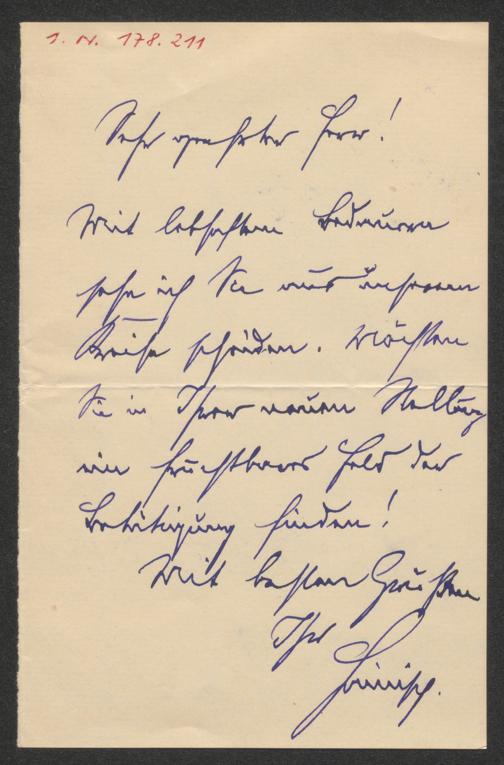 I. N. 178.211
Sehr geehrter Herr!
Mit lebhaftem Bedauern
sehe ich Sie aus unserem
Kreise scheiden. Möchten
Sie in Ihrer neuen Stellung
ein fruchtbares Feld der
Betätigung finden!
Mit besten Grüßen
Ihr
Hainisch.